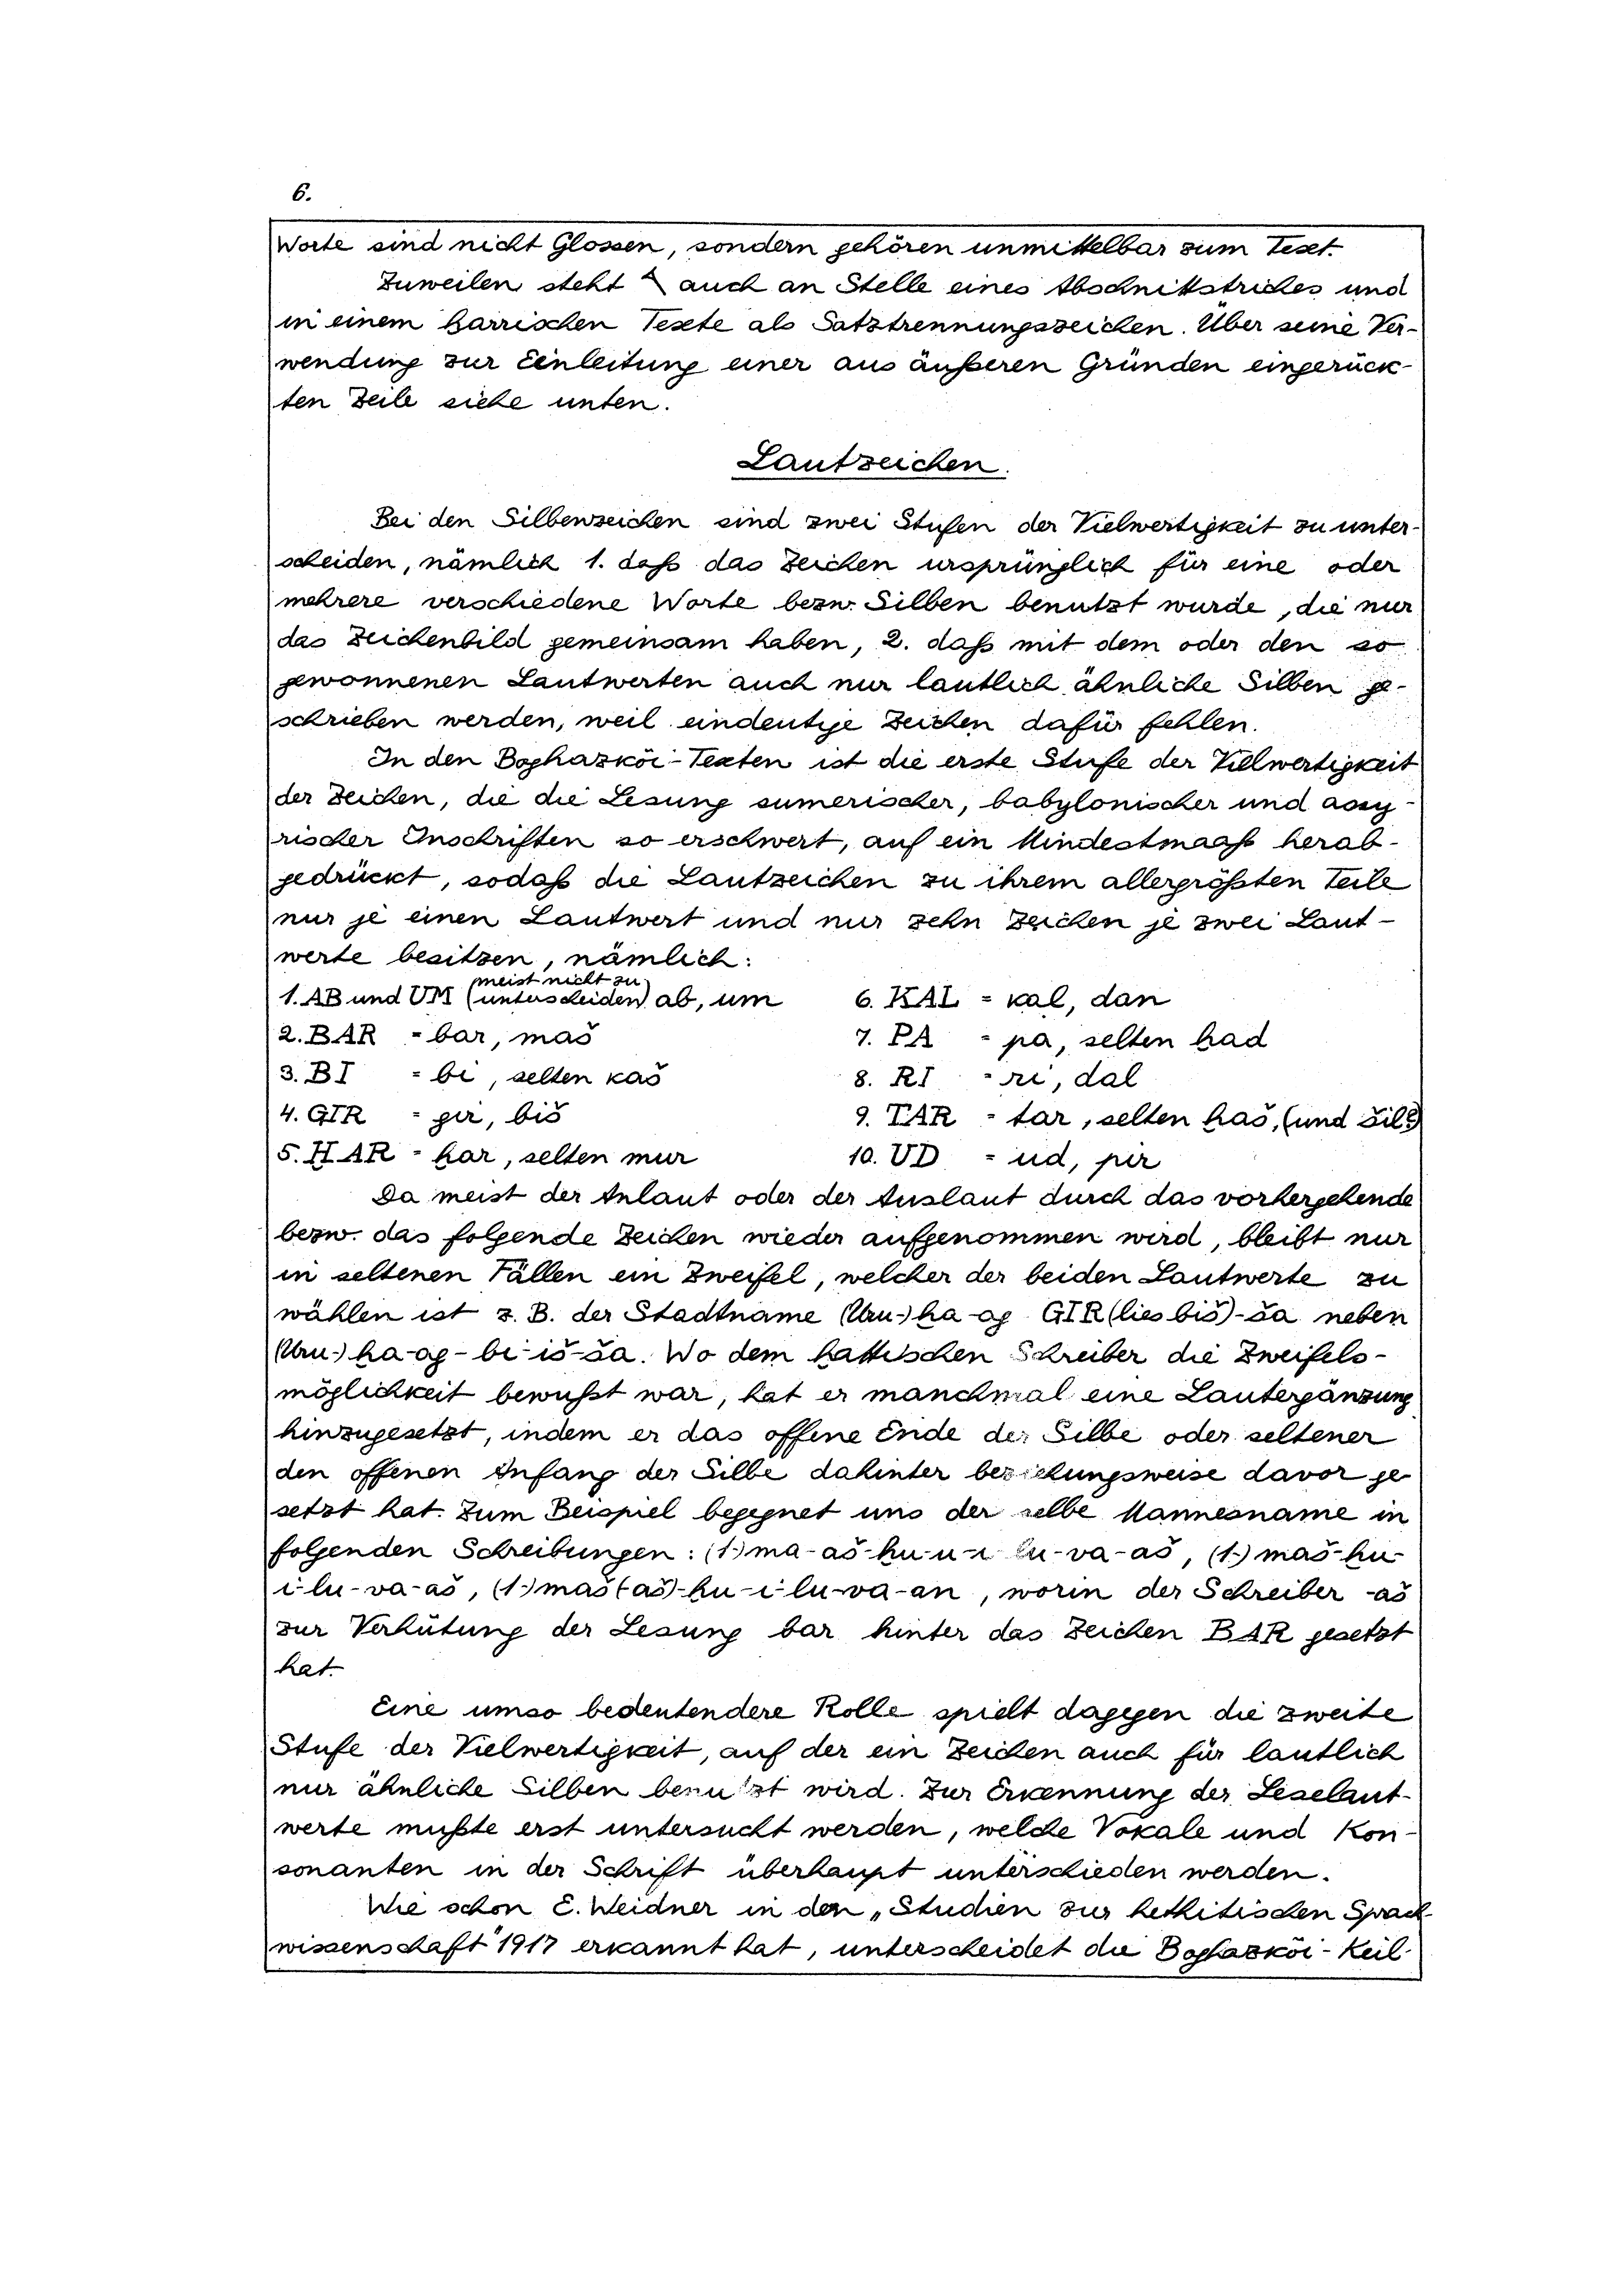 6.
Worte sind nicht Glossen, sondern gehören unmittelbar zum Text.
Zuweilen steht auch an Stelle eines Abschnittstriches und
in einem ḫarrischen Texte als Satztrennungszeichen. Über seine Ver-
wendung zur Einleitung einer aus äußeren Gründen eingerück-
ten Zeile siehe unten.
Lautzeichen.
Bei den Silbenzeichen sind zwei Stufen der Vielwertigkeit zu unter-
scheiden, nämlich 1. daß das Zeichen ursprünglich für eine oder
mehrere verschiedene Worte bezw. Silben benutzt wurde, die nur
das Zeichenbild gemeinsam haben, 2. daß mit dem oder den so
gewonnenen Lautwerten auch nur lautlich ähnliche Silben ge-
schrieben werden, weil eindeutige Zeichen dafür fehlen.
In den Boghazköi-Texten ist die erste Stufe der Vielwertigkeit
der Zeichen, die die Lesung sumerischer, babylonischer und assy-
rischer Inschriften so erschwert, auf ein Mindestmaaß herab-
gedrückt, sodaß die Lautzeichen zu ihrem allergrößten Teile
nur je einen Lautwert und nur zehn Zeichen je zwei Laut-
werte besitzen, nämlich:
1. AB und UM (meist nicht zu unterscheiden) ab, um
2. BAR = bar, maš
3. BI = bi, selten kaš
4. GIR = gir, biš
5. ḪAR = ḫar, selten mur
6. KAL = kal, dan
7. PA = pa, selten ḫad
8. RI = ri, dal
9. TAR = tar, selten ḫaš, (und šil?)
10. UD = ud, pir
Da meist der Anlaut oder der Auslaut durch das vorhergehende
bezw. das folgende Zeichen wieder aufgenommen wird, bleibt nur
in seltenen Fällen ein Zweifel, welcher der beiden Lautwerte zu
wählen ist z. B. der Stadtname (Uru-) ḫa-ag-GIR (lies biš)-ša neben
(Uru-) ḫa-ag-bi-iš-ša. Wo dem ḫattischen Schreiber die Zweifels-
möglichkeit bewußt war, hat er manchmal eine Lautergänzung
hinzugesetzt, indem er das offene Ende der Silbe oder seltener
den offenen Anfang der Silbe dahinter beziehungsweise davor ge-
setzt hat. Zum Beispiel begegnet uns der selbe Mannesname in
folgenden Schreibungen: (1-) ma-aš-ḫu-u-i-lu-va-aš, (1-) maš-ḫu-
i-lu-va-aš, (1-) maš(aš)-ḫu-i-lu-va-an, worin der Schreiber -aš
zur Verhütung der Lesung bar hinter das Zeichen BAR gesetzt
hat.
Eine umso bedeutendere Rolle spielt dagegen die zweite
Stufe der Vielwertigkeit, auf der ein Zeichen auch für lautlich
nur ähnliche Silben benutzt wird. Zur Erkennung der Leselaut-
werte mußte erst untersucht werden, welche Vokale und Kon-
sonanten in der Schrift überhaupt unterschieden werden.
Wie schon E. Weidner in den „Studien zur hethitischen Sprach-
wissenschaft" 1917 erkannt hat, unterscheidet die Boghazköi-Keil-